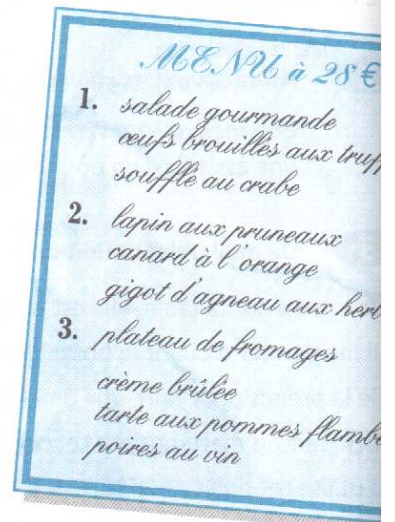 MENU à 28 €
1. salade gourmande
œufs brouillés aux truff
soufflé au crabe
2. lapin aux pruneaux
canard à l'orange
gigot d'agneau aux herb
3. plateau de fromages
crème brûlée
tarte aux pommes flambé
poires au vin